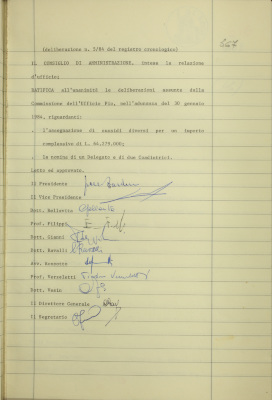 667
(deliberazione n. 5/84 del registro cronologico)
IL CONSIGLIO DI AMMINISTRAZIONE, intesa la relazione
d'uffici
RATIFICA all'unanimità le deliberazioni assunte dalla
Commissione dell'Ufficio Pio, nell'adunanza del 30 gennaio
1984, riguardanti:
. l'assegnazione di sussidi diversi per un importo
complessivo di L.
. la nomina di un Delegato e di due Coadiutrici.
Letto ed approvato.
Il Presidente
Il Vice Presidente
Dott. Bellavita
Prof. Filippa
Dott. Gianni
Dott. Ravalli
Avv.
Prof. Verzeletti
Dott. Vesin
Il Direttore Generale
Il Segretario